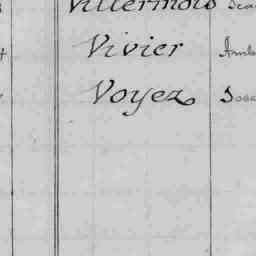 Villermois
Vivier Amb
Voyez Jose